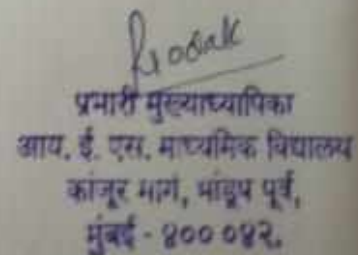 प्रभारी मुख्याध्यापिका
आय. ई. एस. माध्यमिक विद्यालय
कांजूर मार्ग, भांडूप पूर्व,
मुंबई - ४०० ०४२.